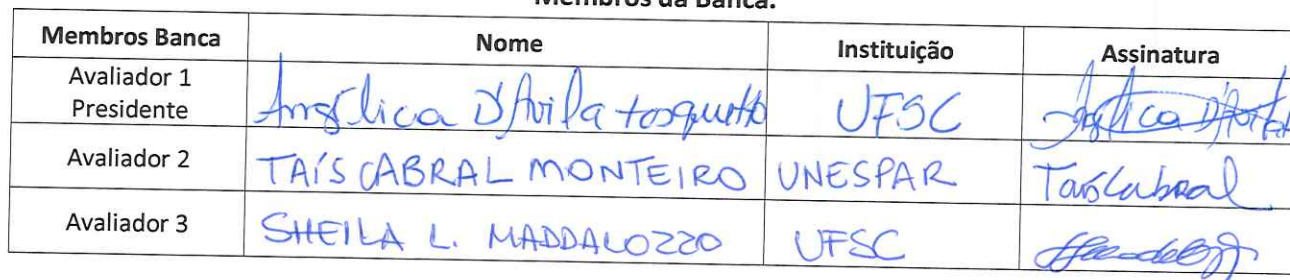 Membros da Banca:
Membros Banca Nome Instituição Assinatura
Avaliador 1
Presidente Angélica D'Avila UFSC Angélica D'Avila
Avaliador 2 TAÍS CABRAL MONTEIRO UNESPAR Taís Cabral
Avaliador 3 SHEILA L. MADDALOZZO UFSC